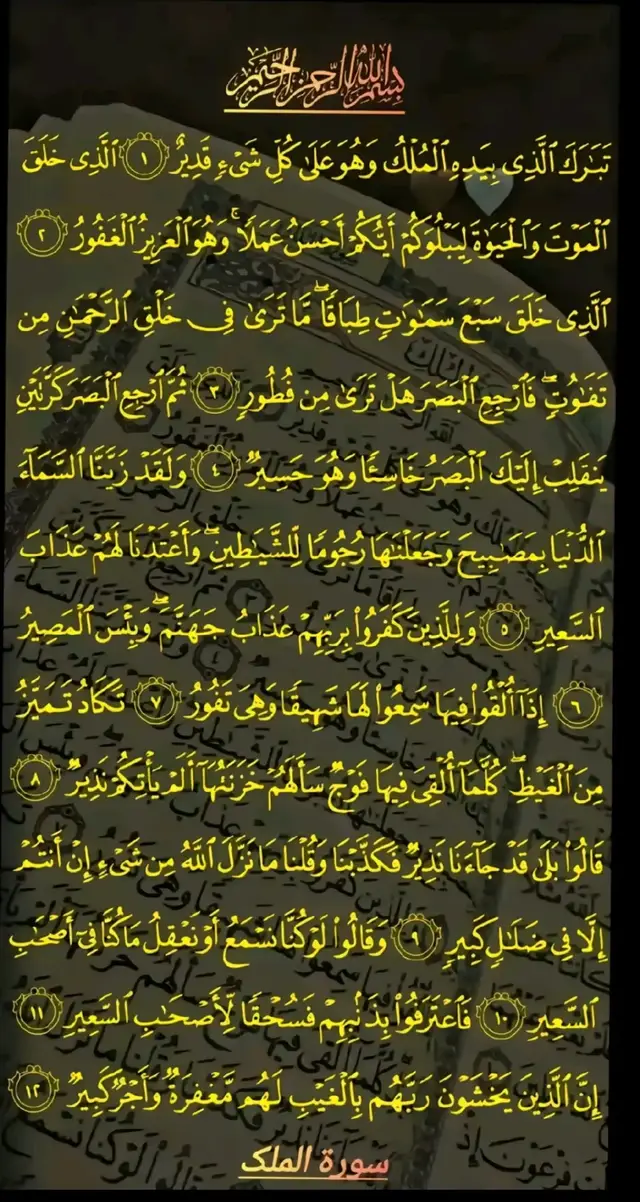 بِسْمِ اللَّهِ الرَّحْمَٰنِ الرَّحِيمِ
تَبَٰرَكَ ٱلَّذِى بِيَدِهِ ٱلْمُلْكُ وَهُوَ عَلَىٰ كُلِّ شَىْءٍ قَدِيرٌ ١ ٱلَّذِى خَلَقَ
ٱلْمَوْتَ وَٱلْحَيَوٰةَ لِيَبْلُوَكُمْ أَيُّكُمْ أَحْسَنُ عَمَلًا ۚ وَهُوَ ٱلْعَزِيزُ ٱلْغَفُورُ ٢
ٱلَّذِى خَلَقَ سَبْعَ سَمَٰوَٰتٍ طِبَاقًا ۖ مَّا تَرَىٰ فِى خَلْقِ ٱلرَّحْمَٰنِ مِن
تَفَٰوُتٍ ۖ فَٱرْجِعِ ٱلْبَصَرَ هَلْ تَرَىٰ مِن فُطُورٍ ٣ ثُمَّ ٱرْجِعِ ٱلْبَصَرَ كَرَّتَيْنِ
يَنقَلِبْ إِلَيْكَ ٱلْبَصَرُ خَاسِئًا وَهُوَ حَسِيرٌ ٤ وَلَقَدْ زَيَّنَّا ٱلسَّمَآءَ
ٱلدُّنْيَا بِمَصَٰبِيحَ وَجَعَلْنَٰهَا رُجُومًا لِّلشَّيَٰطِينِ ۖ وَأَعْتَدْنَا لَهُمْ عَذَابَ
ٱلسَّعِيرِ ٥ وَلِلَّذِينَ كَفَرُوا۟ بِرَبِّهِمْ عَذَابُ جَهَنَّمَ ۖ وَبِئْسَ ٱلْمَصِيرُ
٦ إِذَآ أُلْقُوا۟ فِيهَا سَمِعُوا۟ لَهَا شَهِيقًا وَهِىَ تَفُورُ ٧ تَكَادُ تَمَيَّزُ
مِنَ ٱلْغَيْظِ ۖ كُلَّمَآ أُلْقِىَ فِيهَا فَوْجٌ سَأَلَهُمْ خَزَنَتُهَآ أَلَمْ يَأْتِكُمْ نَذِيرٌ ٨
قَالُوا۟ بَلَىٰ قَدْ جَآءَنَا نَذِيرٌ فَكَذَّبْنَا وَقُلْنَا مَا نَزَّلَ ٱللَّهُ مِن شَىْءٍ إِنْ أَنتُمْ
إِلَّا فِى ضَلَٰلٍ كَبِيرٍ ٩ وَقَالُوا۟ لَوْ كُنَّا نَسْمَعُ أَوْ نَعْقِلُ مَا كُنَّا فِىٓ أَصْحَٰبِ
ٱلسَّعِيرِ ١٠ فَٱعْتَرَفُوا۟ بِذَنۢبِهِمْ فَسُحْقًا لِّأَصْحَٰبِ ٱلسَّعِيرِ ١١
إِنَّ ٱلَّذِينَ يَخْشَوْنَ رَبَّهُم بِٱلْغَيْبِ لَهُم مَّغْفِرَةٌ وَأَجْرٌ كَبِيرٌ ١٢
سورة الملک